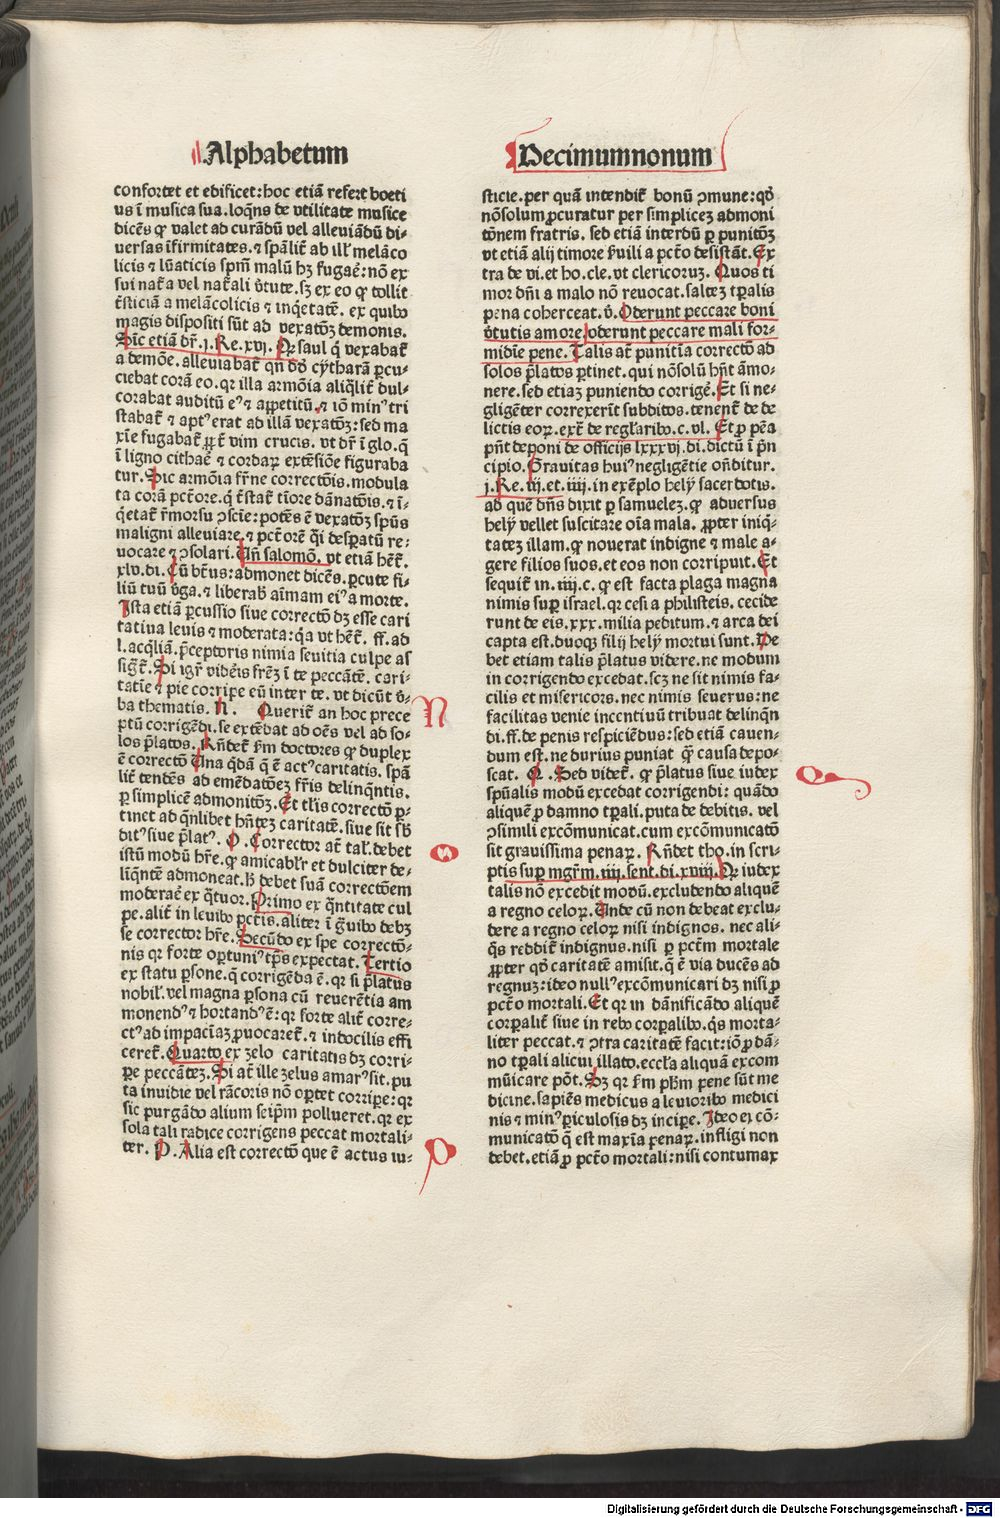 Alphabetum
confortet et edificet: hoc etiā refert boeti
us ī musica sua. loqn̄s de vtilitate musice
dicēs ꝙ valet ad curādū vel alleuiādū di⸗
uersas īfirmitates. ⁊ spālit᷑ ab ill᷑ melāco
licis ⁊ lūaticis spm̄ malū hꝫ fugaē: nō ex
sui nat᷑a vel nat᷑ali v̄tute. sꝫ ex eo ꝙ tollit
t᷑sticiā a melācolicis ⁊ inq̄etatē. ex quibꝰ
magis dispositi sūt ad vexatōꝫ demonis.
Sic etiā dr̄. j. Re. xvj. Qꝛ saul q̄ vexabat᷑
a demōe. alleuiabat᷑ qn̄ dd̄ cytharā ꝑcu⸗
ciebat corā eo. qꝛ illa armōia aliq̄lit᷑ dul⸗
corabat auditū eꝰ ⁊ appetitū. ⁊ iō minꝰ tri
stabat᷑ ⁊ aptꝰ erat ad illā vexatōꝫ: sed ma
xīe fugabat᷑ ꝓpt᷑ vim crucis. vt dr̄ ī glo. q̄
ī ligno cithaē ⁊ cordaꝝ extēsiōe figuraba
tur. Sic armōia fr̄ne correctōis. modula
ta corā pctōre. q̄ t᷑stat᷑ tīore dānatōis. ⁊ ī⸗
q̄etat᷑ r̄morsu ꝯscīe: potēs ē vexatōꝫ spūs
maligni alleuiare. ⁊ pctōrē q̄i despatū re⸗
uocare ⁊ ꝯsolari. Vn̄ salomō. vt etiā het᷑.
xlv. di. Cū bt̄us: admonet dicēs. ꝑcute fi⸗
liū tuū v̄ga. ⁊ liberab̄ aīmam eiꝰ a morte.
Ista etiā ꝑcussio siue correctō dꝫ esse cari
tatiua leuis ⁊ moderata: q̄a vt het᷑. ff. ad
l. acq̄liā. p̄ceptoris nimia seuitia culpe as
sig᷑t᷑. Si igr̄ videis fr̄eꝫ ī te peccātē. cari⸗
tatiē ⁊ pie corripe eū inter te. vt dicūt v̄⸗
ba thematis. N. Querit᷑ an hoc prece
ptū corrigēdi. se extēdat ad oēs vel ad so⸗
los p̄latos. Rn̄det᷑ ẜm doctores ꝙ duplex
ē correctō Una q̄dā q̄ ē actꝰ caritatis. spā
lit᷑ tendēs ad emēdatōeꝫ fr̄is delinq̄ntis.
ꝑ simplicē admonitōꝫ. Et tl̄is correctō ꝑ⸗
tinet ad q̄nlibet hn̄teꝫ caritatē. siue sit sb̄
ditꝰ siue p̄latꝰ. O. Corrector at̄ tal᷑. debet
istū modū hr̄e. ꝙ amicabl̓r et dulciter de⸗
liq̄ntē admoneat. hꝫ debet suā correctōem
moderaē ex q̄tuor. Primo ex q̄ntitate cul
pe. alit᷑ in leuibꝰ pctis. aliter ī g᷑uibꝰ debꝫ
se corrector hr̄e. Secūdo ex spe correctō⸗
nis qꝛ forte oportuniꝰ tp̄s expectat. Tertio
ex statu ꝑsone. q̄ corrigēda ē. qꝛ si p̄latus
nobil᷑. vel magna ꝑsona cū reuerētia am
monendꝰ ⁊ hortandꝰ ē: qꝛ forte alit᷑ corre⸗
ctꝰ ad impaciaꝫ ꝓuocaret᷑. ⁊ indocilis effi
ceret᷑. Quarto ex zelo caritatis dꝫ corri⸗
pe peccātē. Si at̄ ille zelus amarꝰ sit. pu
ta inuidie vel rācoris nō oꝑtet corripe: qꝛ
sic purgādo alium seipm̄ pollueret. qꝛ ex
sola tali radice corrigens peccat mortali⸗
ter. P. Alia est correctō que ē actus iu⸗
N
O
P
Decimumnonum
sticie. per quā intendit᷑ bonū ꝯmune: qd̄
nōsolum ꝓcuratur per simpliceꝫ admoni
tōnem fratris. sed etiā interdū ꝑ punitōꝫ
vt etiā alij timore ẜuili a pctō desistāt. Ex
tra de vi. et ho. cle. vt clericoruꝫ. Quos ti
mor dn̄i a malo nō reuocat. salteꝫ tp̄alis
pena coherceat. v̄. Oderunt peccare boni
v̄tutis amore. oderunt peccare mali for⸗
midīe pene. Talis at̄ punitīa correctō ad
solos p̄latos ꝑtinet. qui nōsolū hn̄t āmo⸗
nere. sed etiaꝫ puniendo corrigē. Et si ne⸗
gligēter correxerīt subditos. tenent᷑ de de
lictis eoꝝ. ext᷑ de regl̓aribꝰ. c. vl. Et ꝓ pēa
pn̄t deponi de officijs lxxxvj. di. dictū ī pn̄
cipio. Grauitas huiꝰ negligētie on̄ditur.
j. Re. iij. et. iiij. in exēplo hely sacerdotis.
ad quē dn̄s dixit ꝑ samueleꝫ. ꝙ aduersus
hely vellet suscitare oīa mala. ꝓpter iniq̄⸗
tateꝫ illam. ꝙ nouerat indigne ⁊ male a⸗
gere filios suos. et eos non corripuit. Et
sequit᷑ in. iiij. c. ꝙ est facta plaga magna
nimis suꝑ israel. qꝛ cesi a philisteis. cecide
runt de eis. xxx. milia peditum. ⁊ arca dei
capta est. duoqꝫ filij hely mortui sunt. De
bet etiam talis p̄latus videre. ne modum
in corrigendo excedat. scꝫ ne sit nimis fa⸗
cilis et misericors. nec nimis seuerus: ne
facilitas venie incentiuū tribuat delinq̄n
di. ff. de penis respiciēdus: sed etiā cauen⸗
dum est. ne durius puniat ꝙ̄ causa depo⸗
scat. Q. Sed videt᷑. ꝙ p̄latus siue iudex
spūalis modū excedat corrigendi: quādo
aliquē ꝓ damno tꝑali. puta de debitis. vel
ꝯsimili excōmunicat. cum excōmunicatō
sit grauissima penaꝝ. Rn̄det tho. in scri⸗
ptis suꝑ mgr̄m. iiij. sent. di. xviij. Qꝛ iudex
talis nō excedit modū. excludendo aliquē
a regno celoꝝ. Unde cū non debeat exclu⸗
dere a regno celoꝝ nisi indignos. nec ali⸗
q̄s reddit᷑ indignus. nisi ꝑ pctm̄ mortale
ꝓpter qd̄ caritatē amisit. q̄ ē via ducēs ad
regnuꝫ: ideo nullꝰ excōmunicari dꝫ nisi ꝓ
pctō mortali. Et qꝛ in dānificādo aliquē
corꝑalit᷑ siue in rebꝰ corꝑalibꝰ. q̄s morta⸗
liter peccat. ⁊ ꝯtra caritatē facit: iō ꝓ dā⸗
no tꝑali alicui illato. eccl̄a aliquā excom
mūicare pōt. Sꝫ qꝛ ẜm ph̄m pene sūt me
dicine. sapiēs medicus a leuioribꝰ medici
nis ⁊ minꝰ ꝑiculosis dꝫ incipe. Ideo excō⸗
municatō q̄ est maxīa penaꝝ. infligi non
debet. etiā ꝓ pctō mortali: nisi contumax
Q
Digitalisierung gefördert durch die Deutsche Forschungsgemeinschaft - DFG